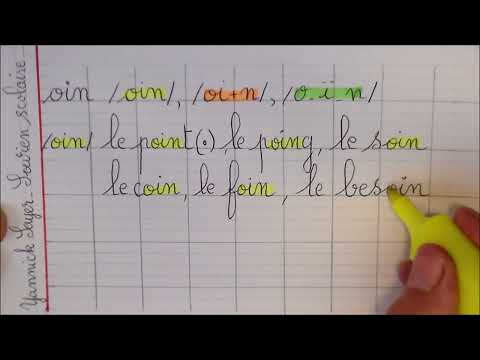 oin /oin/, /oi+n/, /o-ï-n/
/oin/ le point (.), le poing, le soin
le coin, le foin, le besoin
Yannick Sayer-Soutien scolaire